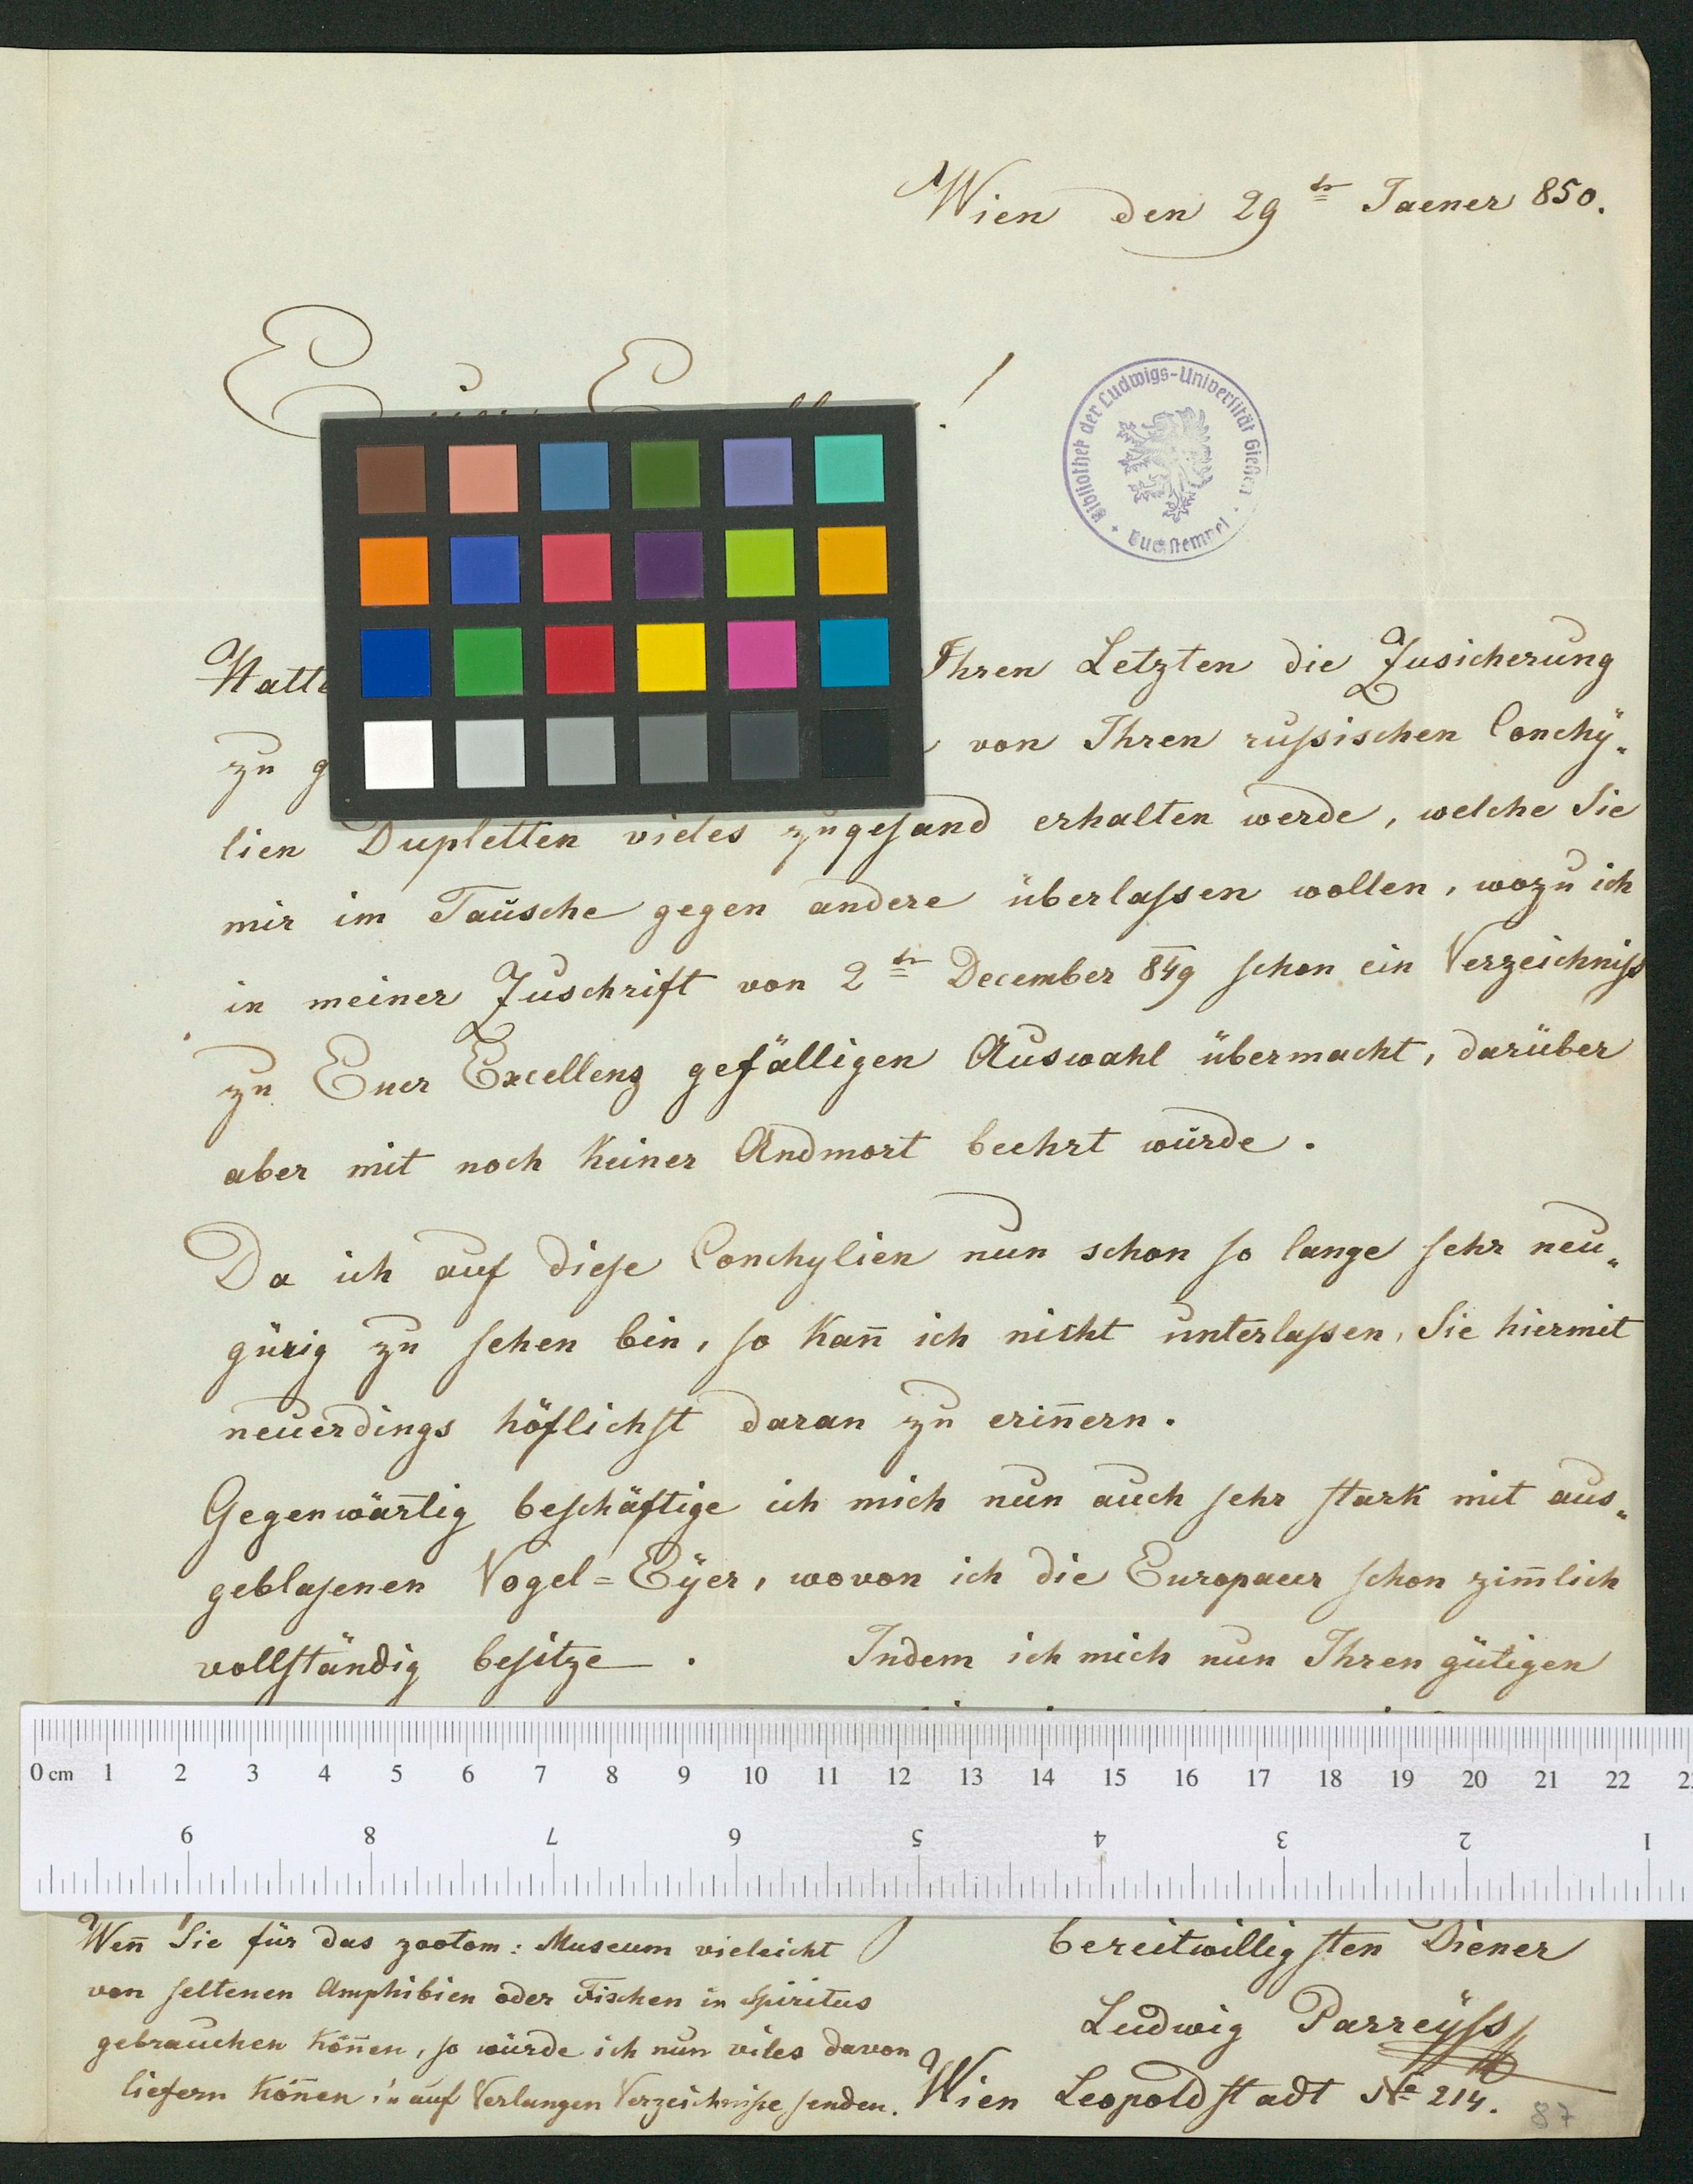 Wien den 29tn Jaener 850.
!
Bibliothek der Ludwigs-Universität Gießen
Buchstempel
Ihren Letzten die Zusicherung
zu
von Ihren rußsischen Conchÿ„
lien Dupletten vieles zugesand erhalten werde, welche Sie
mir im Tausche gegen andere überlaßsen wollen, wozu ich
in meiner Zuschrift von 2tn December 849 schon ein Verzeichniß
zu Euer Excellenz gefälligen Auswahl übermacht, darüber
aber mit noch keiner Andwort beehrt würde.
Da ich auf diese Conchylien nun schon so lange sehr neu„
gürig zu sehen bin, so kan̄ ich nicht unterlaßen, Sie hiermit
neuerdings höflichst daran zu erin̄ern.
Gegenwärtig beschäftige ich mich nun auch sehr stark mit aus„
geblasenen Vogel=Eÿer, wovon ich die Europaeer schon zim̄lich
vollständig besitze. Indem ich mich nun Ihren gütigen
0 cm 1 2 3 4 5 6 7 8 9 10 11 12 13 14 15 16 17 18 19 20 21 22
9 8 7 6 5 4 3 2 1
Wen̄ Sie für das zootom: Museum vieleicht
von seltenen Amphibien oder Fischen in Spiritus
gebrauchen kön̄en, so würde ich nun viles davon
liefern kön̄en u auf Verlangen Verzeichniße senden.
bereitwilligsten Diener
Ludwig Parreÿss
Wien Leopoldstadt No 214.
87